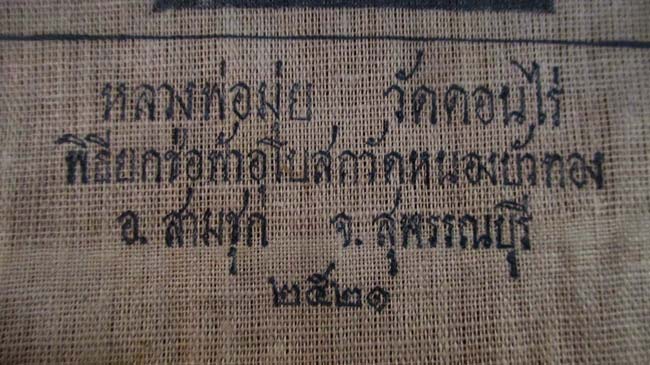 หลวงพ่อมุ่ย วัดดอนไร่
พิธียกช่อฟ้าอุโบสถวัดหนองบัวทอง
อ. สามชุก จ. สุพรรณบุรี
๒๕๒๑